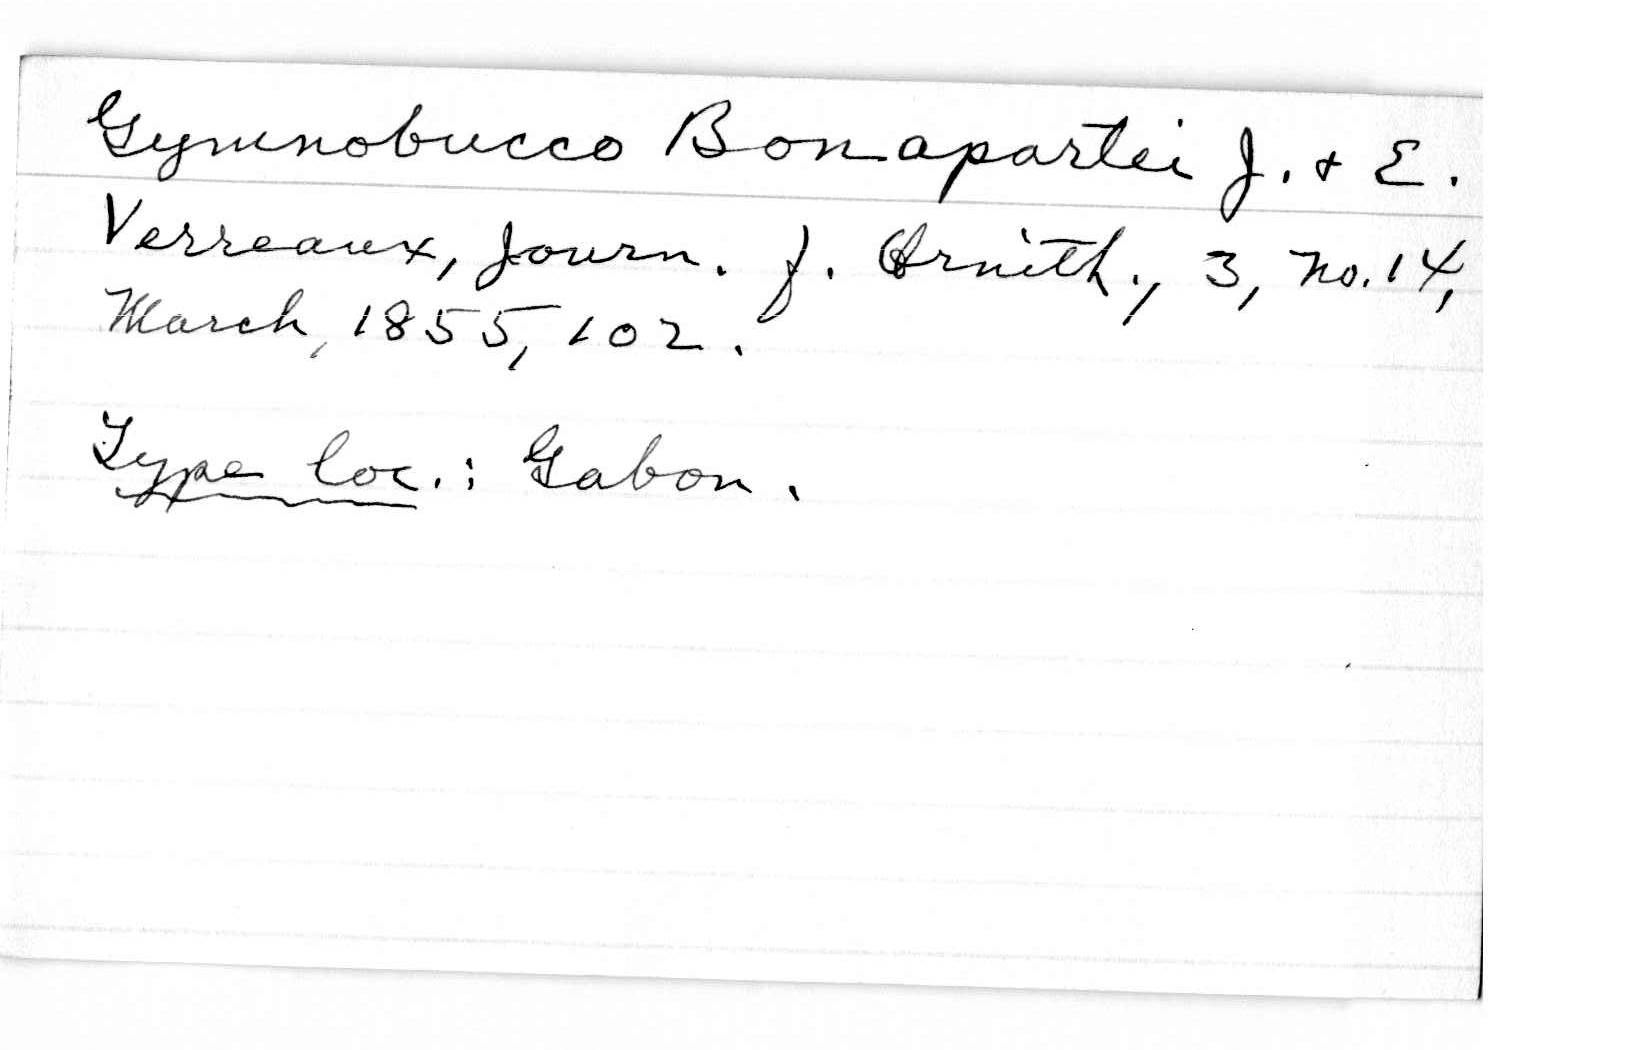 Gymnobucco Bonapartei J. & E.
Verreaux, Journ. f. Ornith., 3, no. 14,
March, 1855, 102.
Type loc.: Gabon.